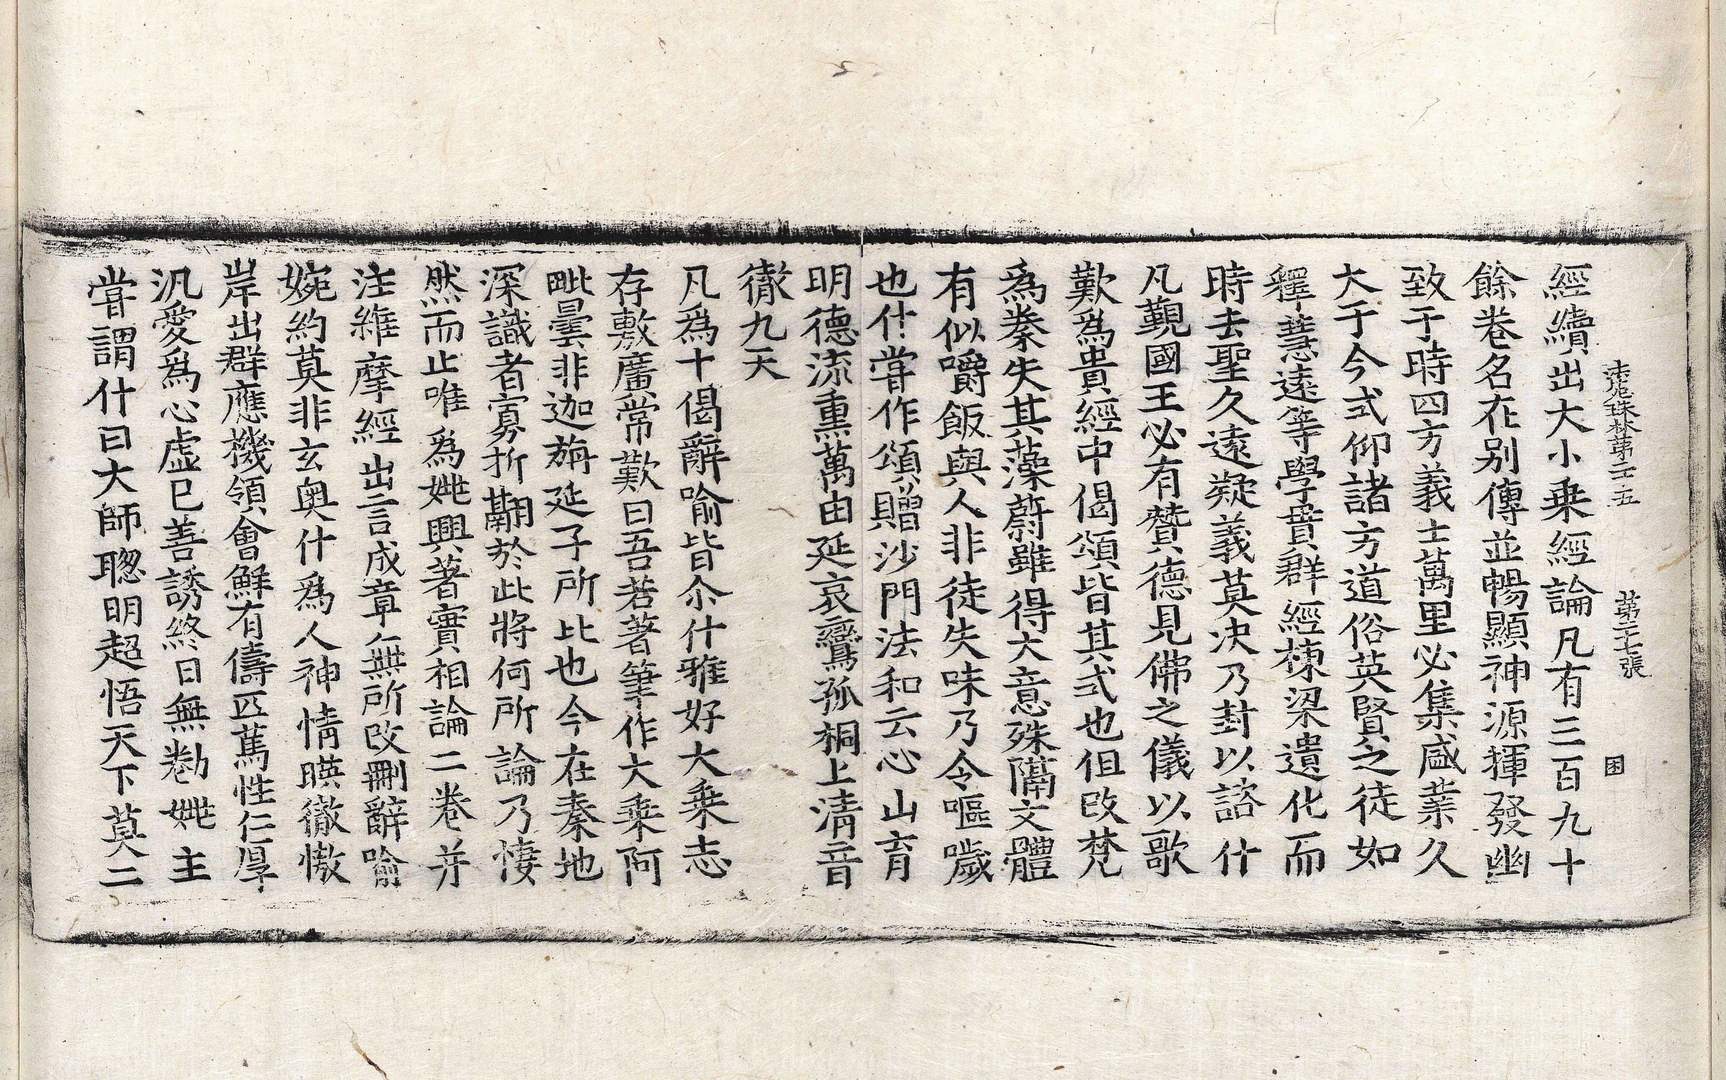 法苑珠林第二十五 第二十七張 困
經續出大小乘經論凡有三百九十
餘卷名在别傳並暢顯神源揮發幽
致于時四方義士萬里必集盛業久
大于今式仰諸方道俗英賢之徒如
釋慧遠等學貫群經棟梁遺化而
時去聖久遠疑義莫决乃封以諮什
凡覲國王必有贊德見佛之儀以歌
歎爲貴經中偈頌皆其式也但改梵
爲秦失其藻蔚雖得大意殊隔文體
有似嚼飯與人非徒失味乃令嘔噦
也什嘗作頌贈沙門法和云心山育
明德流熏萬由延哀鸞孤桐上清音
徹九天
凡爲十偈辭喻皆尒什雅好大乘志
存敷廣常歎曰吾若著筆作大乘阿
毗曇非迦旃延子所比也今在秦地
深識者寡折翮於此將何所論乃悽
然而止唯爲姚興著實相論二卷并
注維摩經出言成章無所改刪辭喻
婉約莫非玄奥什爲人神情暎徹慠
岸出群應機領會鮮有儔匹篤性仁厚
汎愛爲心虚已善誘終日無勌姚主
嘗謂什曰大師聦明超悟天下莫二